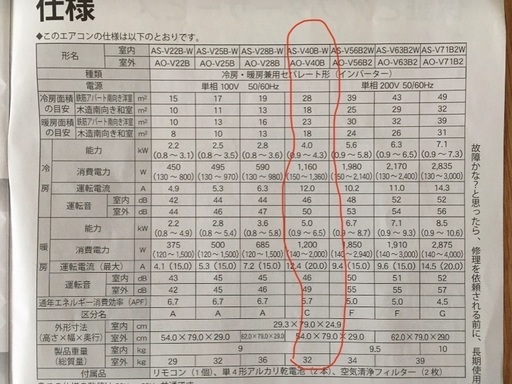 仕様
◆このエアコンの仕様は以下のとおりです。
形名 室内 AS-V22B-W AS-V25B-W AS-V28B-W AS-V40B-W AS-V56B2W AS-V63B2W AS-V71B2W
室外 AO-V22B AO-V25B AO-V28B AO-V40B AO-V56B2 AO-V63B2 AO-V71B2
種類 冷房・暖房兼用セパレート形（インバーター）
電源 単相 100V 50/60Hz 単相 200V 50/60Hz
冷房面積の目安 鉄筋アパート南向き洋室 m² 15 17 19 28 39 43 49
木造南向き和室 m² 10 11 13 18 25 29 32
暖房面積の目安 鉄筋アパート南向き洋室 m² 10 13 16 23 30 32 39
木造南向き和室 m² 8 10 13 18 24 26 31
冷房 能力 kW 2.2 2.5 2.8 4.0 5.6 6.3 7.1
(0.8〜3.1) (0.8〜3.5) (0.8〜3.6) (0.9〜4.3) (0.9〜5.8) (0.9〜6.5) (0.9〜7.3)
消費電力 W 450 495 590 1,160 1,980 2,170 2,835
(130〜800) (130〜970) (130〜980) (150〜1,360)
運転電流 A 4.9 5.3 6.3 12.0 10.2 11.0 14.3
運転音 室内 dB 42 44 44 46 48 52 53
室外 dB 44 46 47 50 53 54 56
暖房 能力 kW 2.2 2.8 3.6 5.0 6.7 7.1 8.5
(0.8〜4.9) (0.8〜5.4) (0.8〜5.8) (0.9〜8.7) (0.9〜9.3) (0.9〜10.6)
消費電力 W 375 500 685 1,200 1,850 1,910 2,875
(120〜1,500) (120〜1,500) (120〜1,500) (140〜2,000)
運転電流（最大） A 4.1 (15.0) 5.3 (15.0) 7.2 (15.0) 12.4 (20.0) 9.4 (15.0) 9.6 (15.0) 14.5 (20.0)
運転音 室内 dB 43 45 45 46 50 51 52
室外 dB 45 45 46 49 55 55 57
通年エネルギー消費効率（APF） 6.7 6.7 6.7 5.7 5.0 5.0 4.5
区分名 A A A C F F G
外形寸法（高さ×幅×奥行） 室内 cm 29.3 × 79.0 × 24.9
室外 cm 54.0 × 79.0 × 29.0 62.0 × 79.0 × 29.0 54.0 × 79.0 × 29.0 62.0 × 79.0 × 29.0
製品重量（総重量） 室内 kg 9 9.5 10
室外 kg 29 32 36 32 34 39
付属品 リモコン（1個）、単4形アルカリ乾電池（2本）、空気清浄フィルター（2枚）
故障かな？と思ったら、修理を依頼される前に、長期使用